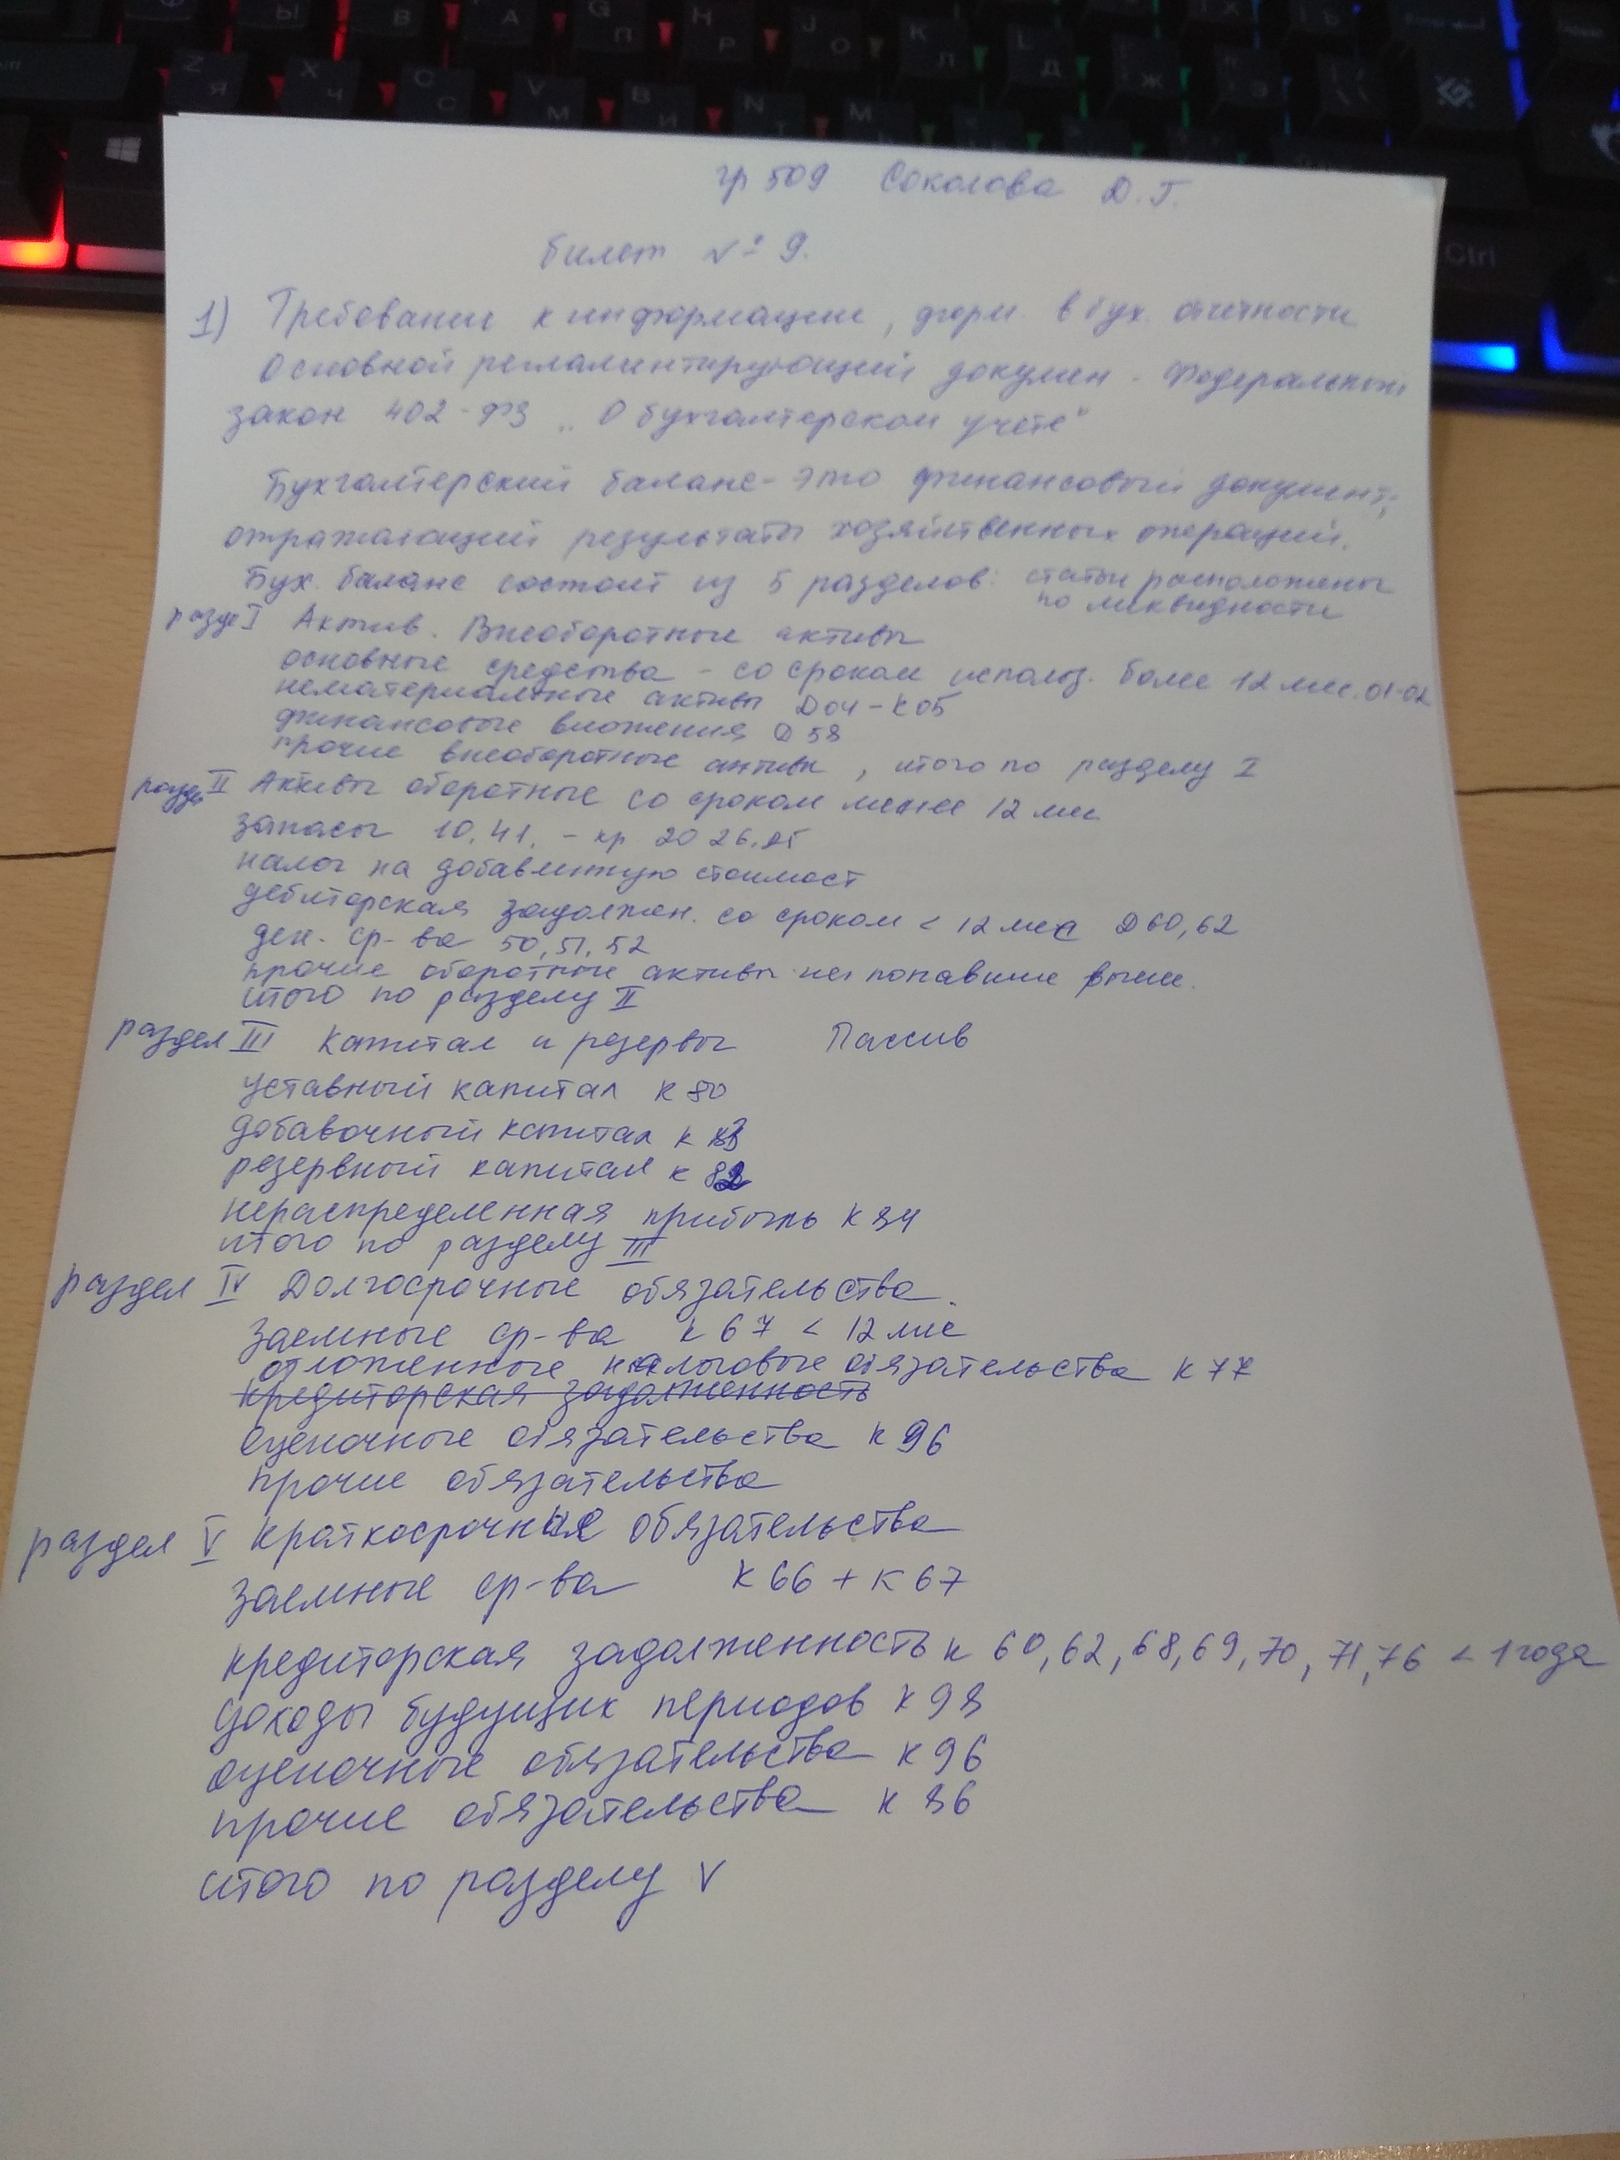 гр 509 Соколова Д.Г.
билет № 9.
1) Требование к информации, форм. в бух. отчетности
Основной регламинтирующий докумен - Федеральный
закон 402-ФЗ „О бухгалтерском учете"
Бухгалтерский баланс - это финансовый документ,
отражающий результаты хозяйственных операций.
Бух. баланс состоит из 5 разделов: статьи расположены
по ликвидности
I Актив. Внеоборотные активы
основные средства - со сроком использ. более 12 мес. 01-02
нематериальные активы Д04-К05
финансовые вложения Д 58
прочие внеоборотные активы, итого по разделу I
II Активы оборотные со сроком менее 12 мес
запасы 10, 41. - кр 20 26.25
налог на добавленную стоимост
дебиторская задолжен. со сроком < 12 мес Д60,62
ден. ср-ва 50, 51, 52
прочие оборотные активы не попавшие выше.
итого по разделу II
раздел III Капитал и резервы Пассив
уставный капитал К 80
добавочный капитал К 83
резервный капитал К 82
нераспределенная прибыль К 84
итого по разделу III
раздел IV Долгосрочные обязательства.
заемные ср-ва К 67 < 12 мес
отложенные налоговые обязательства К 77
кредиторская задолженность
оценочные обязательства К 96
прочие обязательства
раздел V Краткосрочные обязательства
заемные ср-ва К 66 + К 67
кредиторская задолженность К 60, 62, 68, 69, 70, 71, 76 < 1 года
доходы будущих периодов К 98
оценочные обязательства К 96
прочие обязательства К 86
итого по разделу V